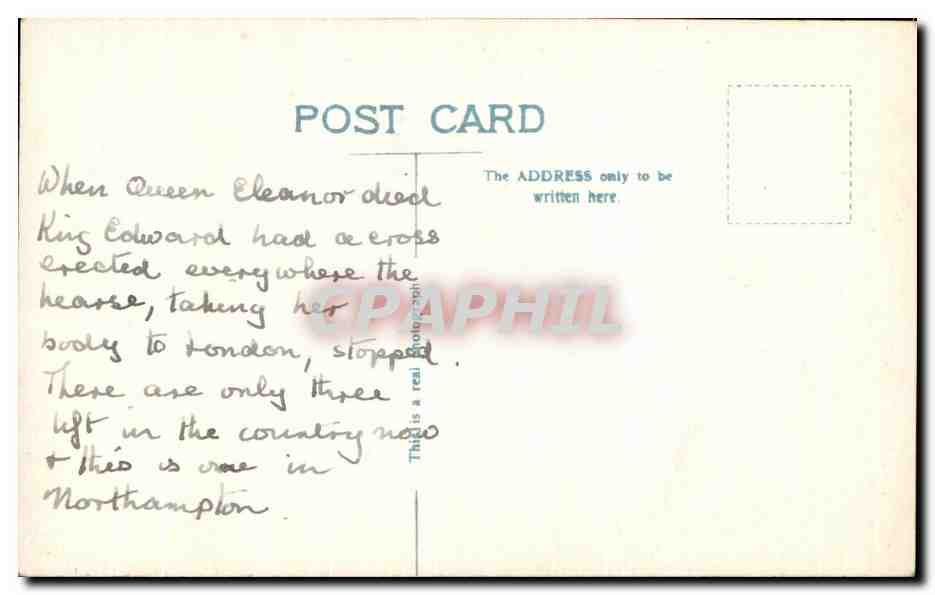 POST CARD
The ADDRESS only to be
written here.
When Queen Eleanor died
King Edward had a cross
erected everywhere the
hearse, taking her
body to London, stopped.
There are only three
left in the country now
+ this is one in
Northampton.
This is a real photograph
CPAPHIL